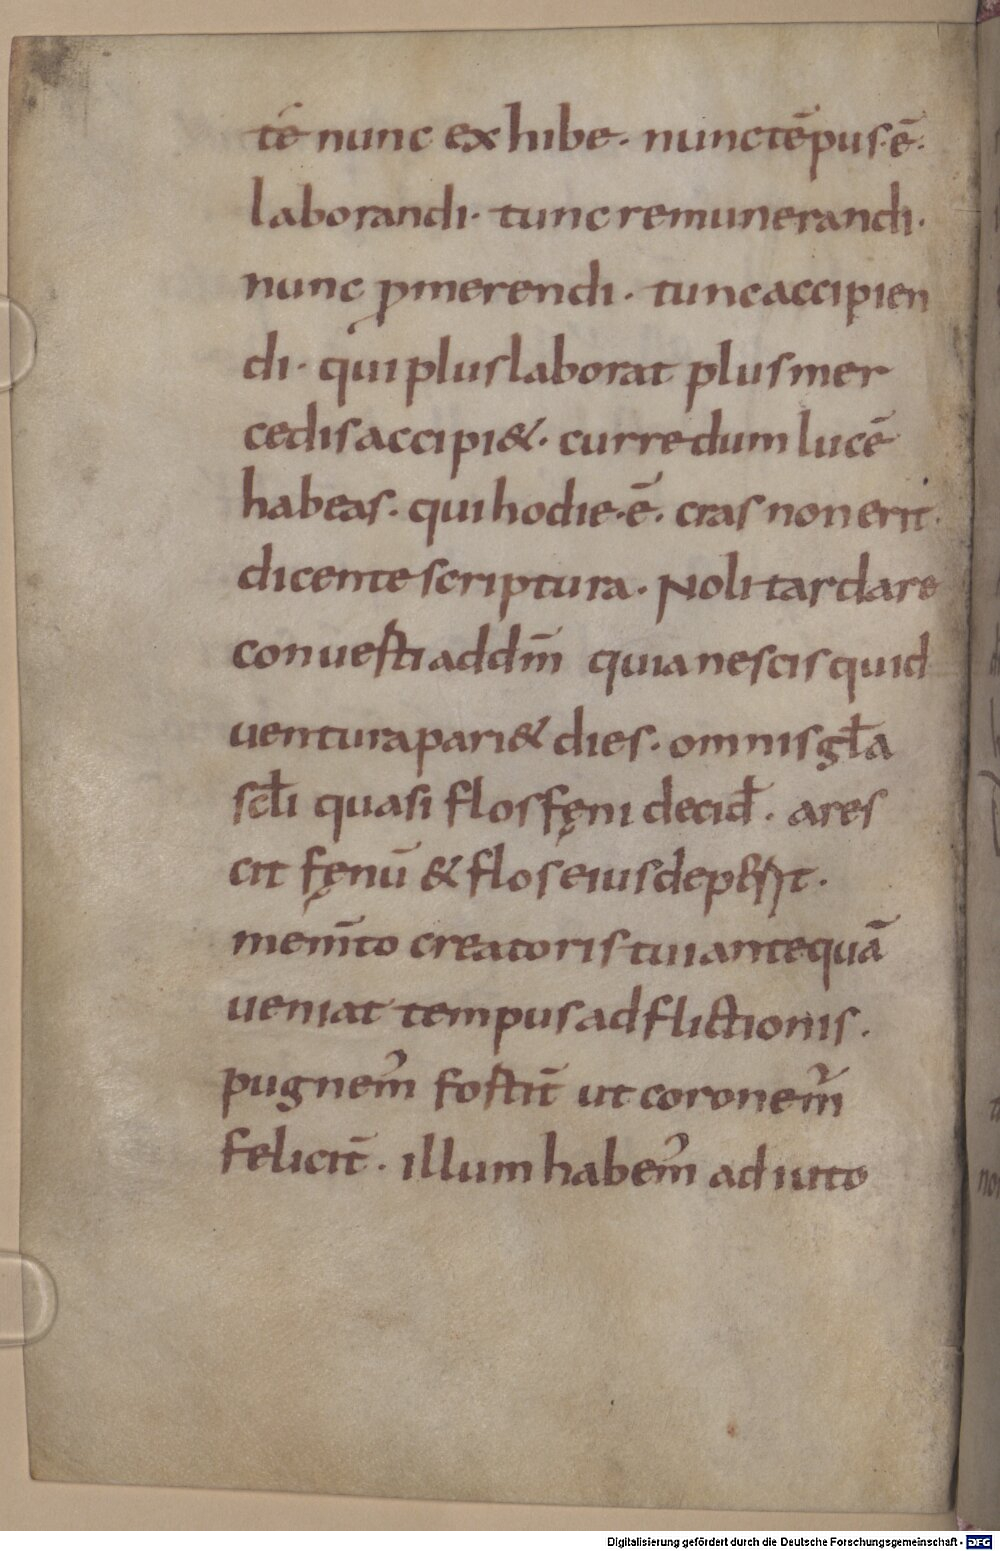 té nunc exhibe· nunc tēpus·ē·
laborandi· tunc remunerandi·
nunc ꝓmerendi· tunc accipien
di· qui plus laborat plus mer
cedis accipi&· curre dum lucē
habeas· qui hodie·ē· cras non erit·
dicente scriptura· Noli tardare
conuesti ad dm̄ quia nescis quid
uentura pari& dies· omnis gła
scłi quasi flos fęni decid̄· ares
cit fęnū & flos eius
mem̄to creatoris tui antequā
ueniat tempus adflictionis·
pugnem̉ fortit̄ ut coronem̉
felicit̄· illum habem̉ adiuto
Digitalisierung gefördert durch die Deutsche Forschungsgemeinschaft - DFG